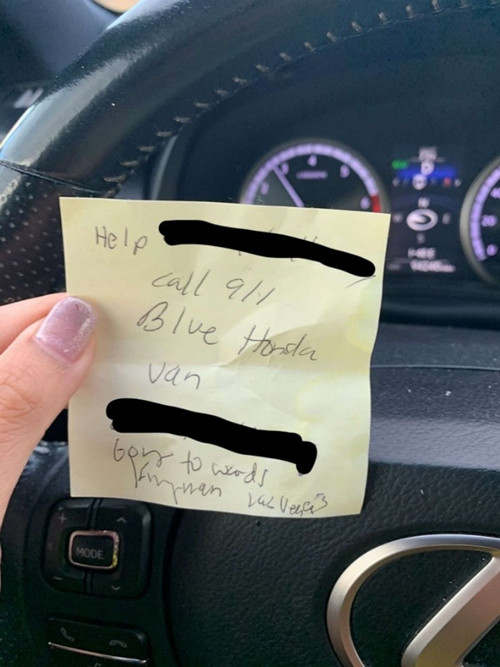 Help
call 911
Blue Honda
van
to wards
Kingman Las Vegas
MODE